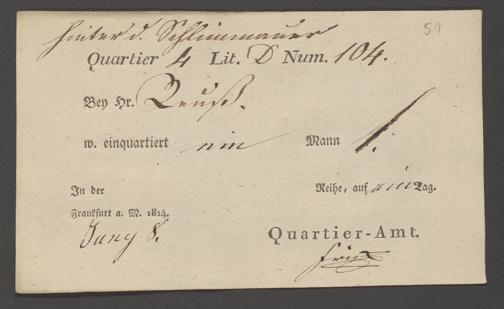 51
hinter d. Schlimmauer
Quartier 4 Lit. D Num. 104.
Bey Hr. Reuß.
w. einquartiert ein Mann 1.
In der Reihe, auf ein Tag.
Frankfurt a. M. 1814.
Juny 8.
Quartier-Amt.